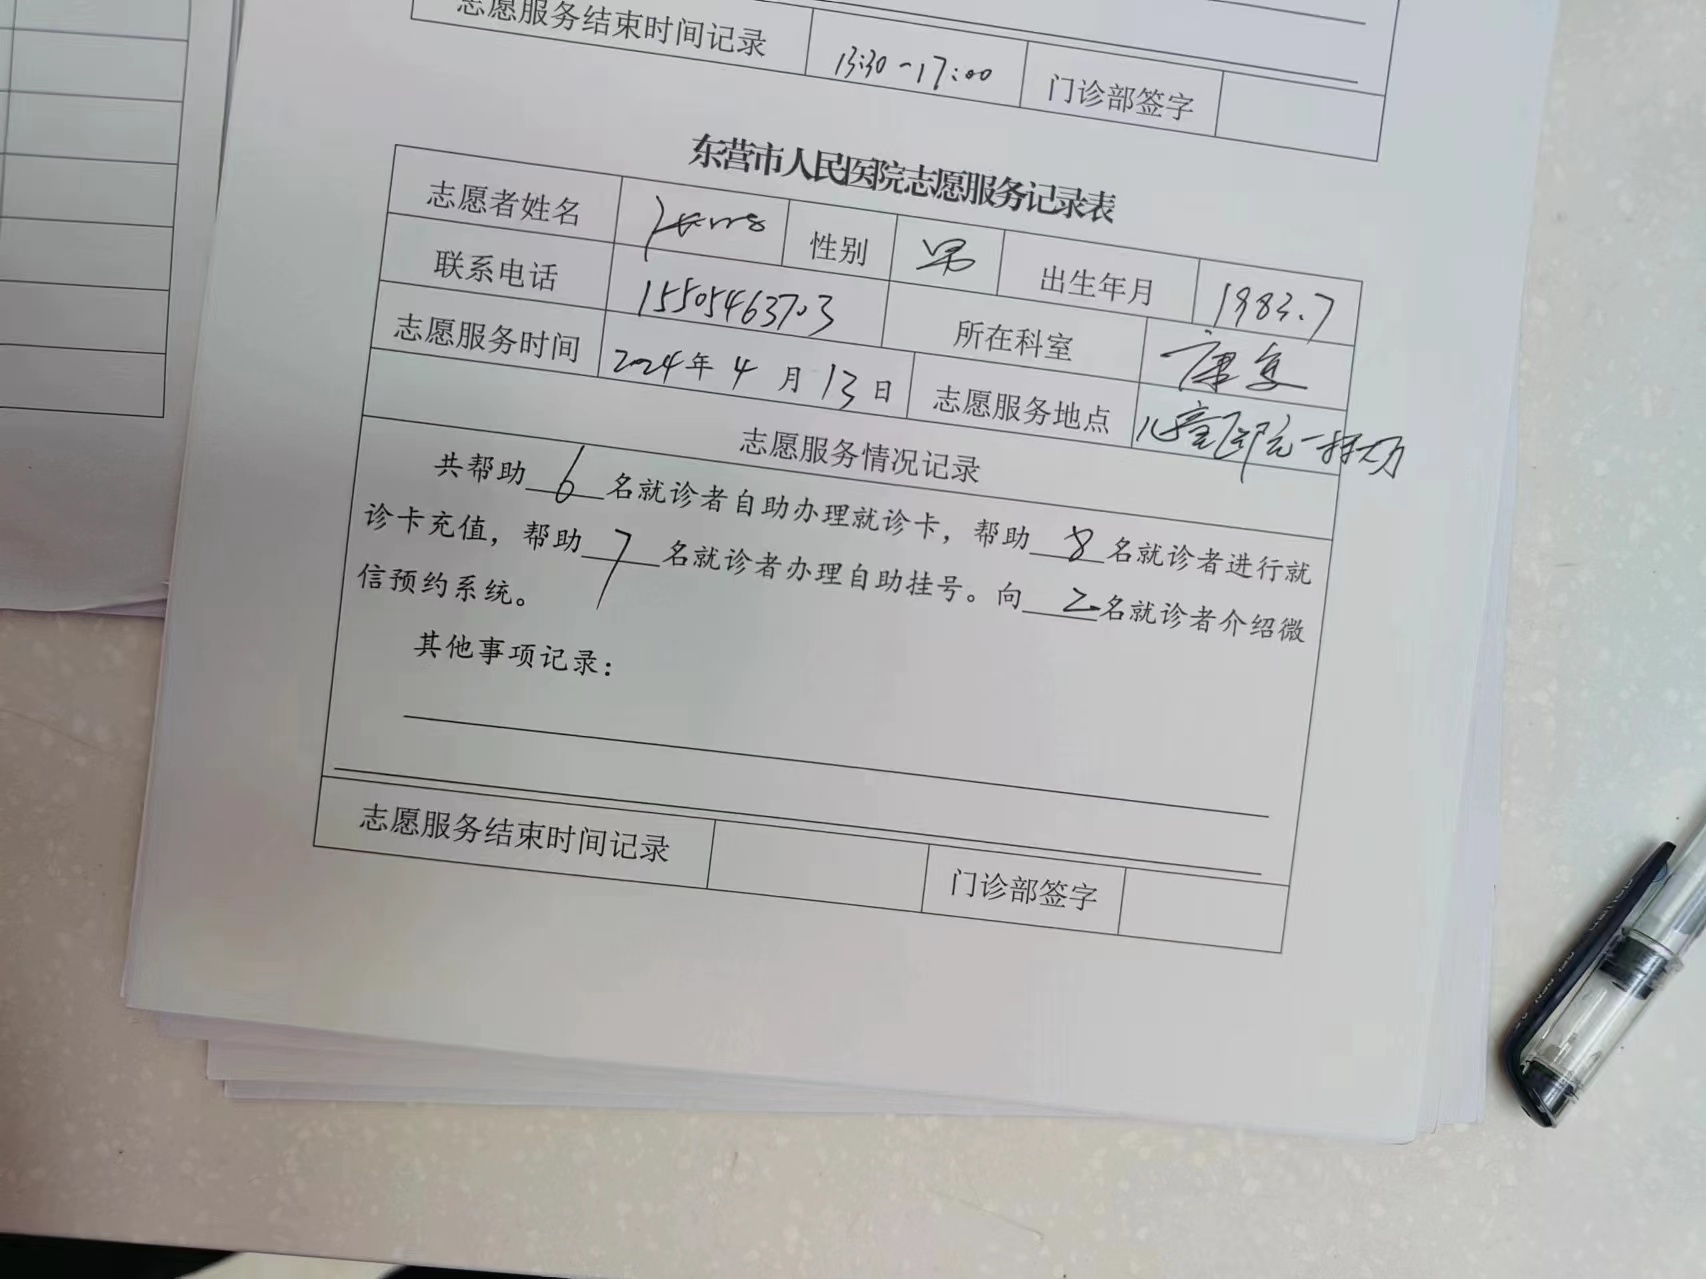 志愿服务结束时间记录 13:30-17:00 门诊部签字
东营市人民医院志愿服务记录表
志愿者姓名 性别 男 出生年月 1983.7
联系电话 15505463703 所在科室 康复
志愿服务时间 2024年 4 月 13 日 志愿服务地点 儿童医院一楼大厅
志愿服务情况记录
共帮助 6 名就诊者自助办理就诊卡，帮助 8 名就诊者进行就
诊卡充值，帮助 7 名就诊者办理自助挂号。向 2 名就诊者介绍微
信预约系统。
其他事项记录：
志愿服务结束时间记录 门诊部签字